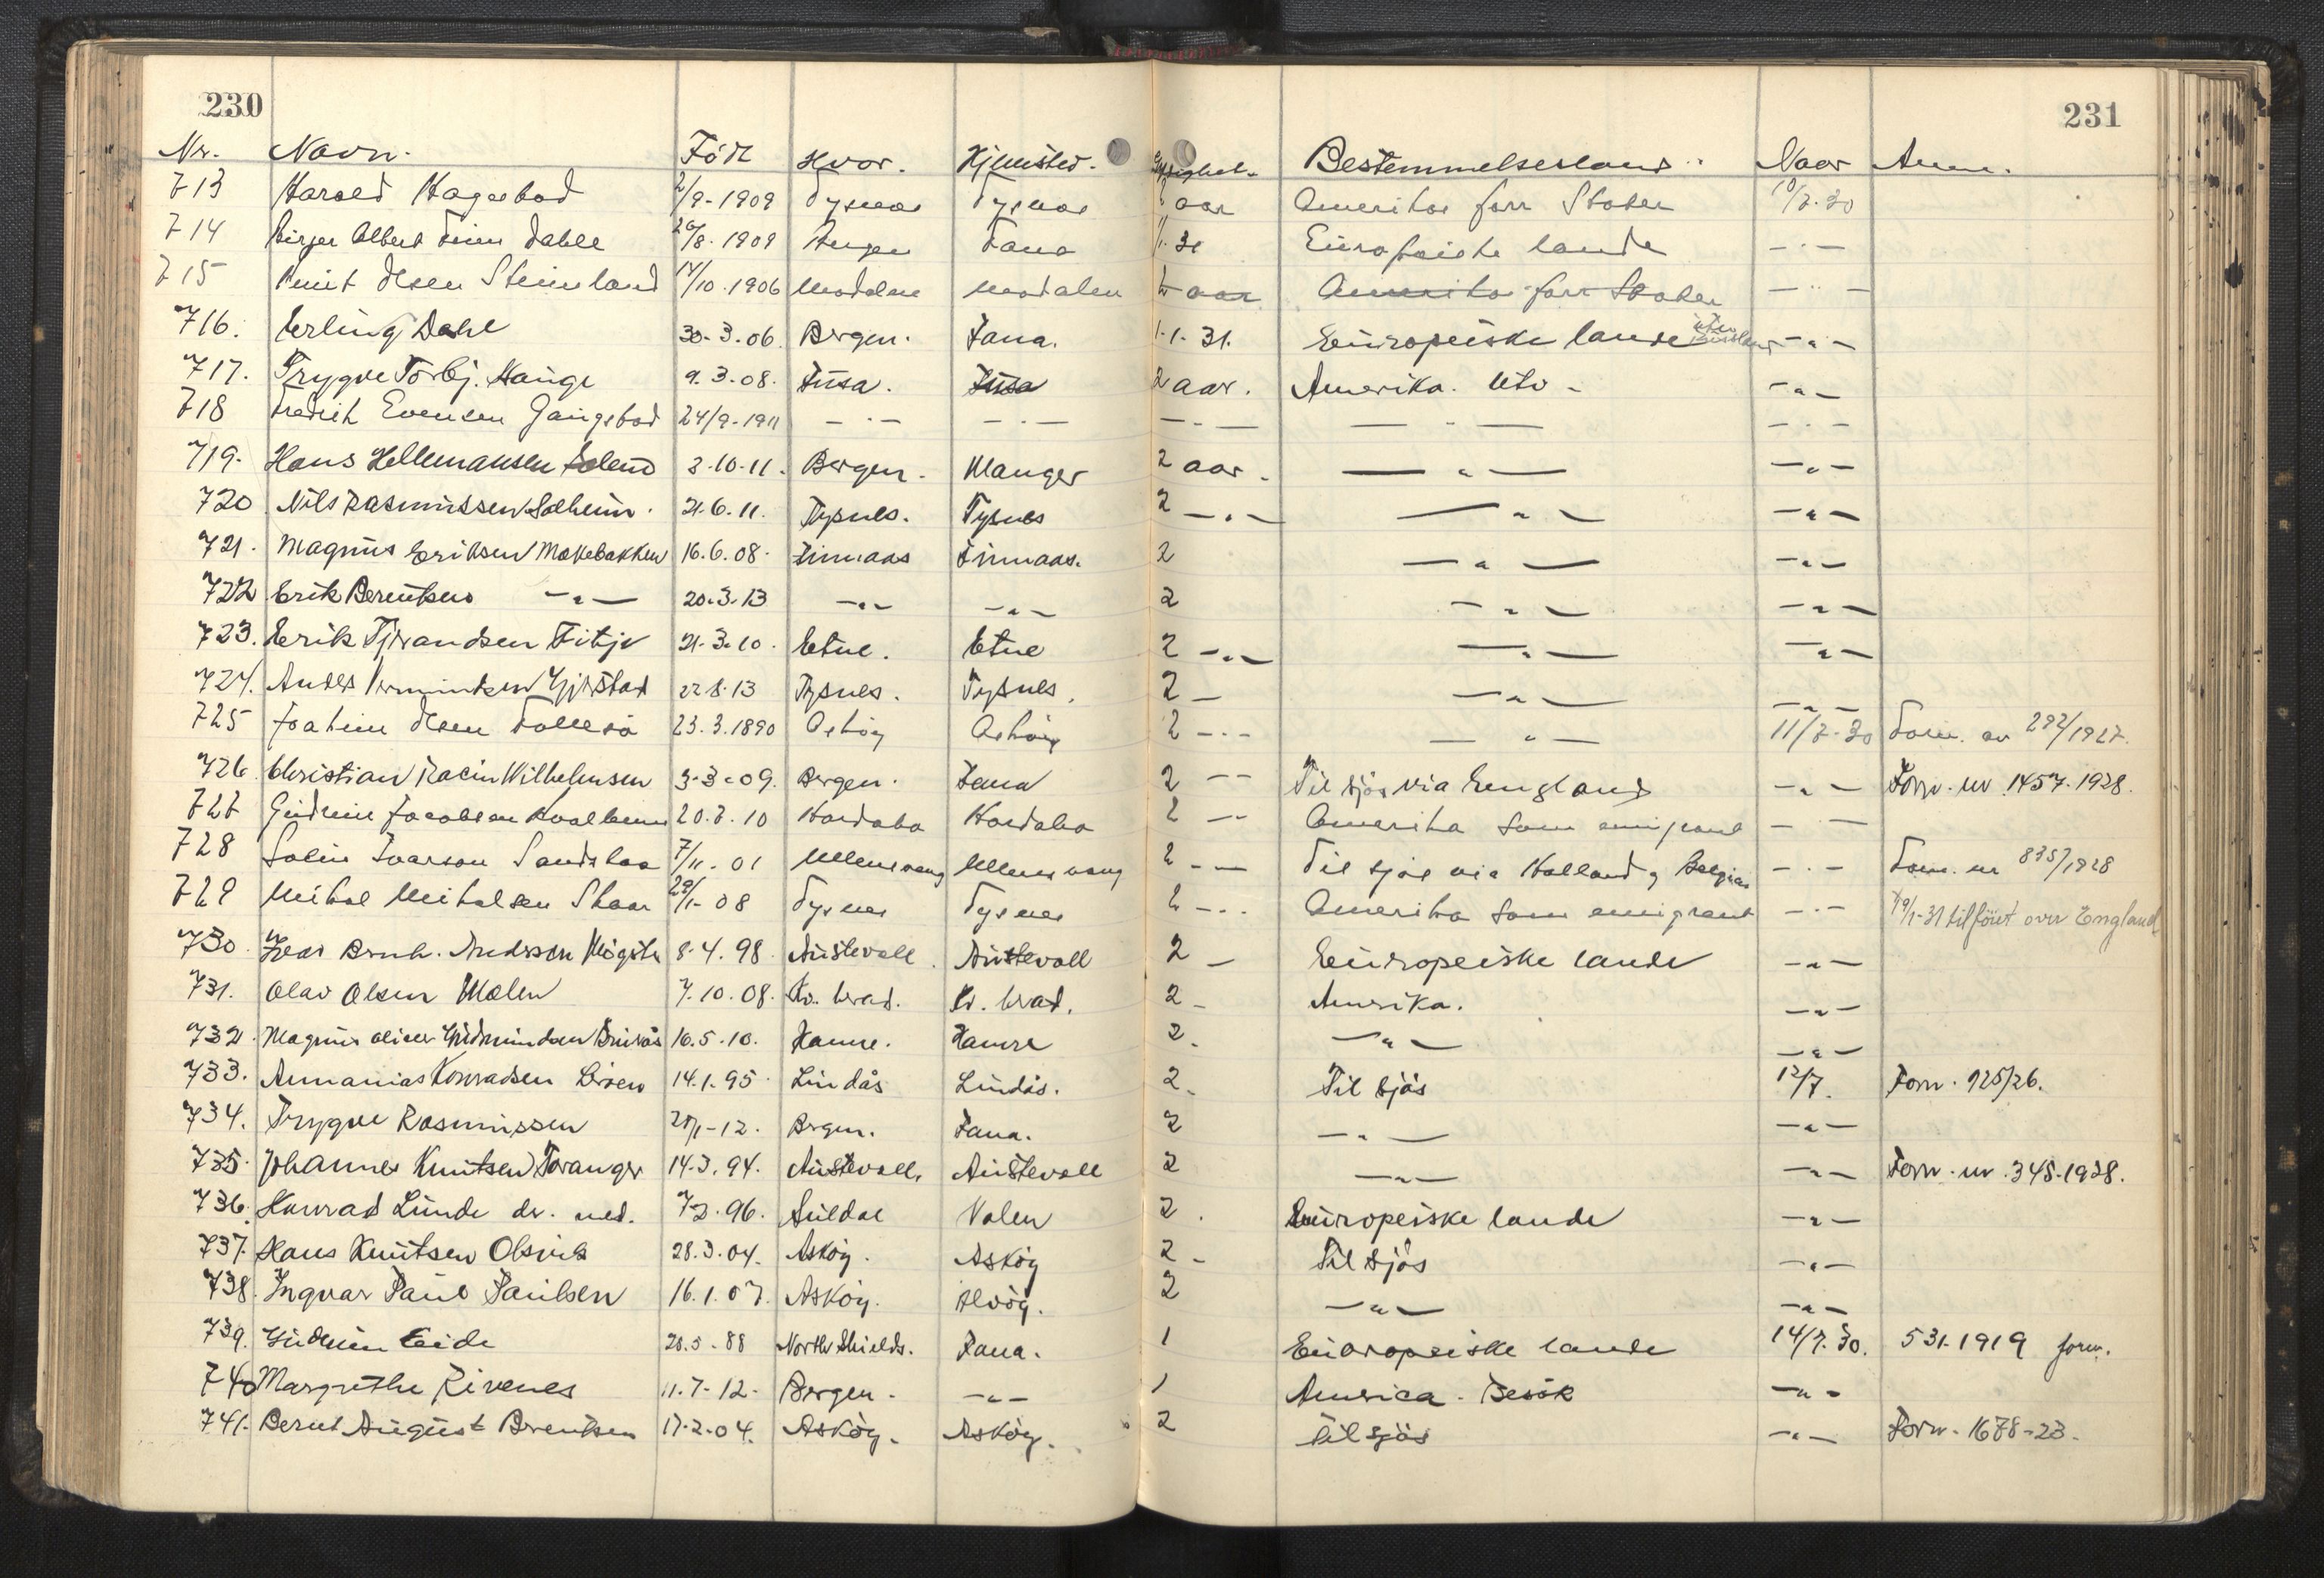 230 231
Nr. Navn. Född Hvor. Hjemsted. Bestemmelsesland Naar Anm.
713 Harald Hagesbad 2/9-1909 Tysnes Tysnes 2 aar Amerikas for. Stater 10/7.30
714 Birger Albert Dahle 20/8-1909 Bergen Fana 1/1.31 Europæiske lande —"—
715 Knut Olsen Steinsland 14/10.1906 Modalen Modalen 2 aar Amerikas for. Stater —"—
716. Erling Dahl 30-3.06. Bergen. Fana. 1-1-31. Europeiske lande uten Russland —"—
717. Trygve Torbj. Hauge 9.3-08. Fusa. Fusa 2 aar. Amerika. Utv - —"—
718 Fredrik Evensen Gaugstad 24/9-1911 —"— —"— —"— —"— —"—
719. Hans Hellemansen 3-10-11. Bergen. Manger 2 aar. —"— —"—
720 Nils Rasmussen Solheim. 21.6.11. Tysnes. Tysnes 2 —"— —"— —"—
721. Magnus Eriksen Mækebakken 16.6.08. Finnaas Finnaas. 2 —"— —"—
722 Erik Berentsen —"— 20.3.13 —"— —"— 2 —"— —"—
723. Erik Tjerandsen Fitje 21-3-10. Etne. Etne 2 —"— —"— —"—
724. Anders Gjerstad 22.8.13 Tysnes. Tysnes. 2 — —"— —"—
725 Joakim Olsen Follesö 23.3.1890 Asköy Asköy 2 —"— —"— 11/7-30 Forn. av 292/1927.
726. Christian Racin Wilhelmsen 3-3-09. Bergen. Fana 2 —— Til sjös via England —"— Forn. nr. 1457.1928.
727 Gudmun Jacobsen Kvalheim 20.7.10 Hordabo Hordabo 2 —— Amerika som emigrant —"—
728 Ivarson 7/11-01 Ullensvang Ullensvang 2 —— Til sjös via Holland, Belgien —"— Forn. nr 835/1928
729 Mikal Mikalsen Skaar 29/1-08 Tysnes Tysnes 2 —"— Amerika som emigrant —"— 19/1-31 tilföiet over England
730. Ivar Bernh. Anderson Mögster 8.4.98. Austevoll. Austevoll 2 — Europeiske lande —"—
731. Olav Olsen Mælen 7.10.08. Kv. herad. Kv. herad. 2 - Amerika. —"—
732. Magnus Oliver Gudmundsen Bruvås 16.5.10. Hamre. Hamre 2. —"— —"—
733. Annanias Konradsen 14.1.95. Lindås Lindås. 2. Til sjös 12/7. Forn. 925/26.
734. Trygve Rasmussen -12. Bergen. Fana. 2 —"— —"—
735. Johannes Knutsen Toranger 14.3.94. Austevoll. Austevoll 2 —"— —"— Forn. nr. 345.1928.
736. Konrad Lunde dr. med. 7.2.96. Suldal Valen 2. Europeiske lande —"—
737. Hans Knutsen Olsvik 28.3.04. Asköy. Asköy 2 - Til sjös —"—
738. Ingvar Paul Paulsen 16.1.07. Asköy. Alvöy. 2 —"— —"—
739. Gudrun Eide 28.5-88 North Shields. Fana. 1 Europeiske lande 14/7.30. 531.1919 forn.
740 Margrethe Rivenes 11.7-12. Bergen. —"— 1 America. Besök —"—
741. Bernt August Berentsen 17-2-04. Asköy. Asköy. 2 Til sjös —"— Forn. 1678-23.